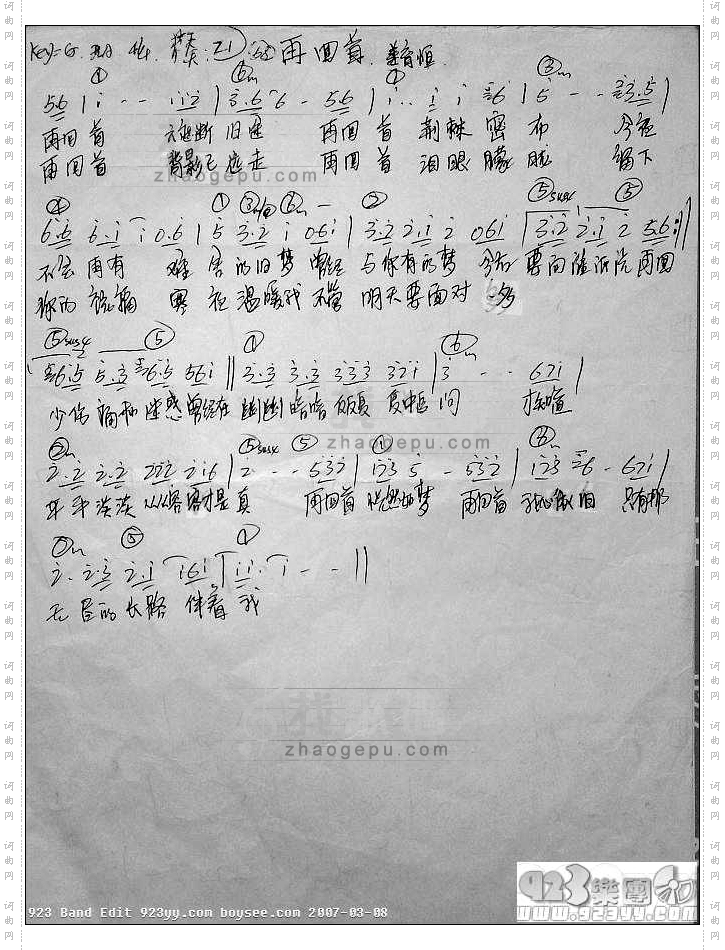 Key=G 4/4 再回首 姜育恒
56 | i - - i i 2 | 3.6 6 - 56 | i . . i i 6 | 5 - - 3.5 |
再回首 云遮断归途 再回首 荆棘密布 今夜
再回首 背影已远走 再回首 泪眼朦胧 留下
zhaogepu.com
6.6 6.i i 0.6 | 5 3.2 i 06i | 3.2 2.i 2 06i | 3.2 2.i 2 5.6 :||
不会再有 难舍的旧梦 曾经与你有的梦 今后要向谁诉说 再回
你的祝福 寒夜温暖我 不管明天要面对 多
6.5 5.3 6.5 56i || 3.3 3.3 3333 32i | 3 - - 67i |
少伤痛和迷惑 曾经在幽幽暗暗反反复复中追问 才知道
zhaogepu.com
2.2 2.2 222 2i6 | 2 - - 532 | i23 5 - 532 | i23 6 - 67i |
平平淡淡从从容容才是真 再回首恍然如梦 再回首我心依旧 只有那
2. 2.3 2.i i6i | i i . i - - ||
无尽的长路伴着我
zhaogepu.com
923 Band Edit 923yy.com boysee.com 2007-03-08
923樂團
www.923yy.com
词曲网